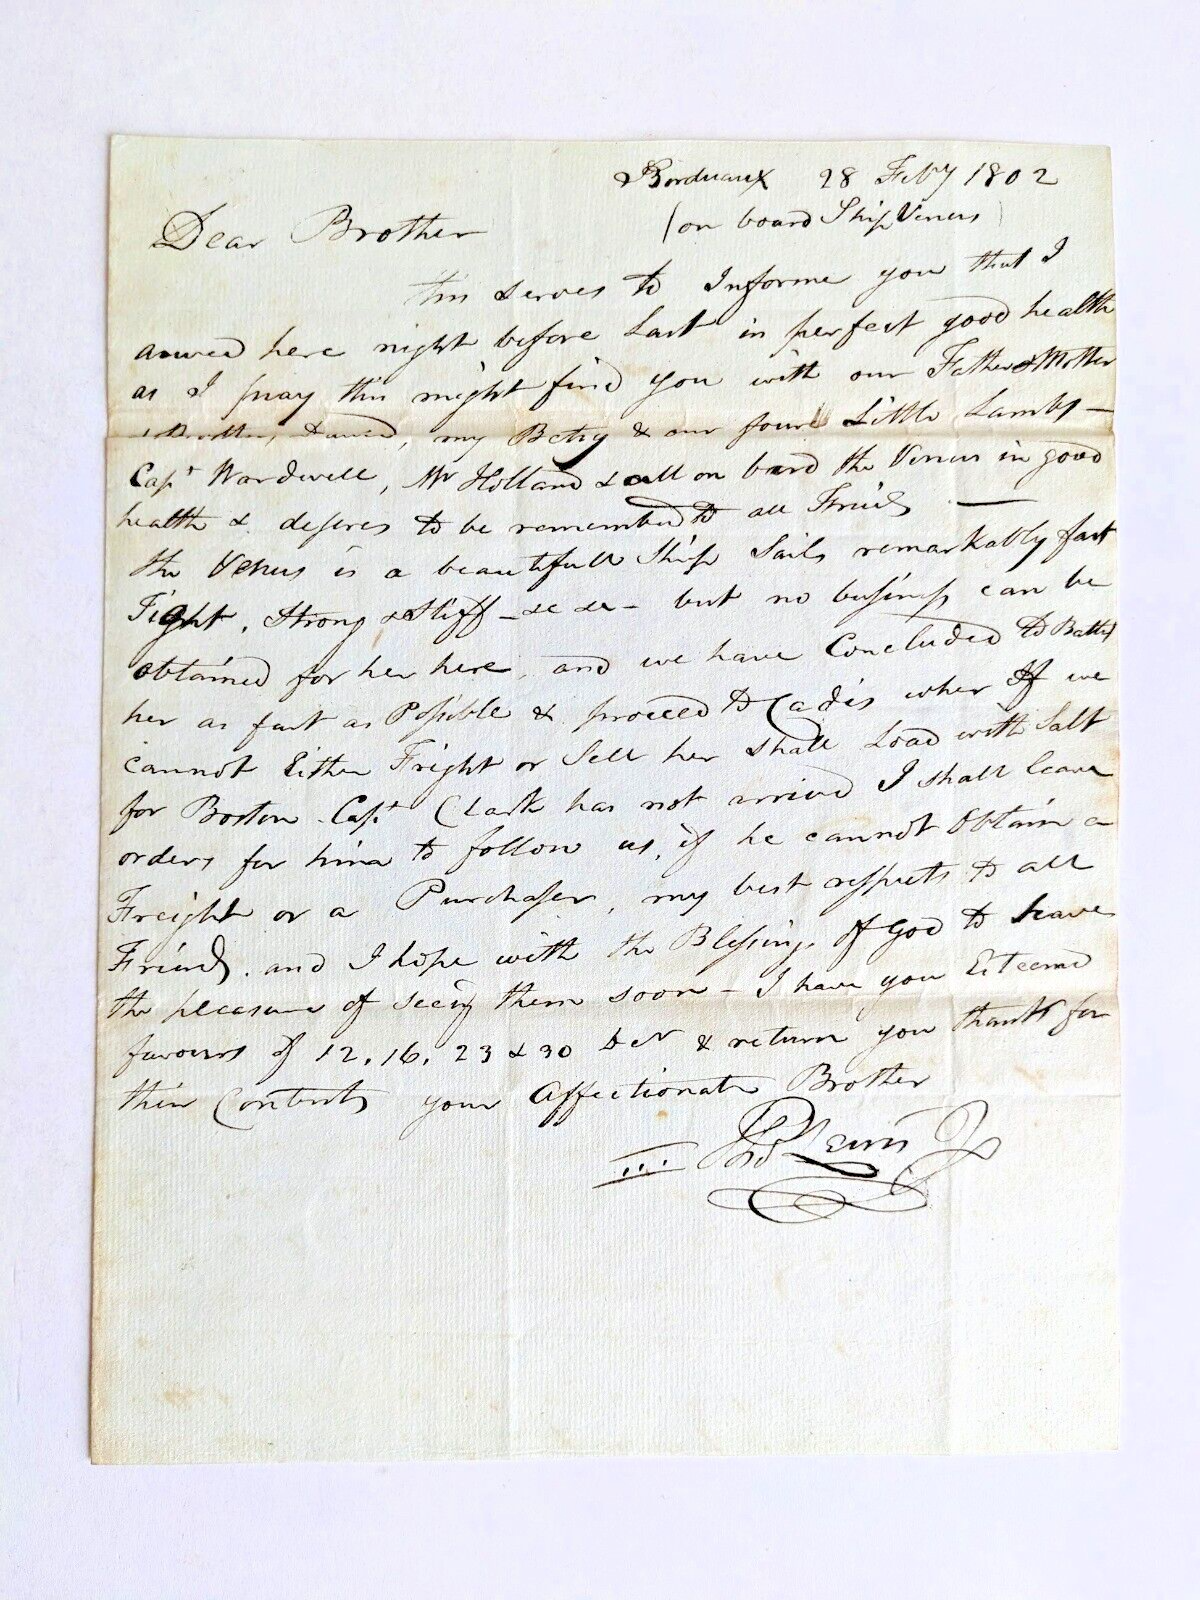 Bordeaux 28 Feby 1802
(on board Ship Venus)
Dear Brother
this serves to Informe you that I
arived here night before Last in perfect good health
as I pray this might find you with our Father & Mother
& Brother David, my Betsy & our four Little Lambs —
Capt Wardwell, Mr Holland & all on bard the Venus in good
health & desires to be remembd to all Friends —
the Venus is a beautifull Ship Sails remarkably fast
Tight, Strong & Stiff — &c &c — but no business can be
obtained for her here, and we have Concluded to Ballst
her as fast as Possible & proceed to Cadis wher If we
cannot Either Fright or Sell her shall Load with Salt
for Boston. Capt Clark has not arrived I shall leave
orders for him to follow us, if he cannot Obtain a
Freight or a Purchaser, my best respects to all
Friends. and I hope with the Blessings of God to have
the pleasure of seeig them soon — I have you Esteemd
favours of 12, 16, 23 & 30 Decr & return you thanks for
their Contents your Affectionate Brother
Lewis Jr